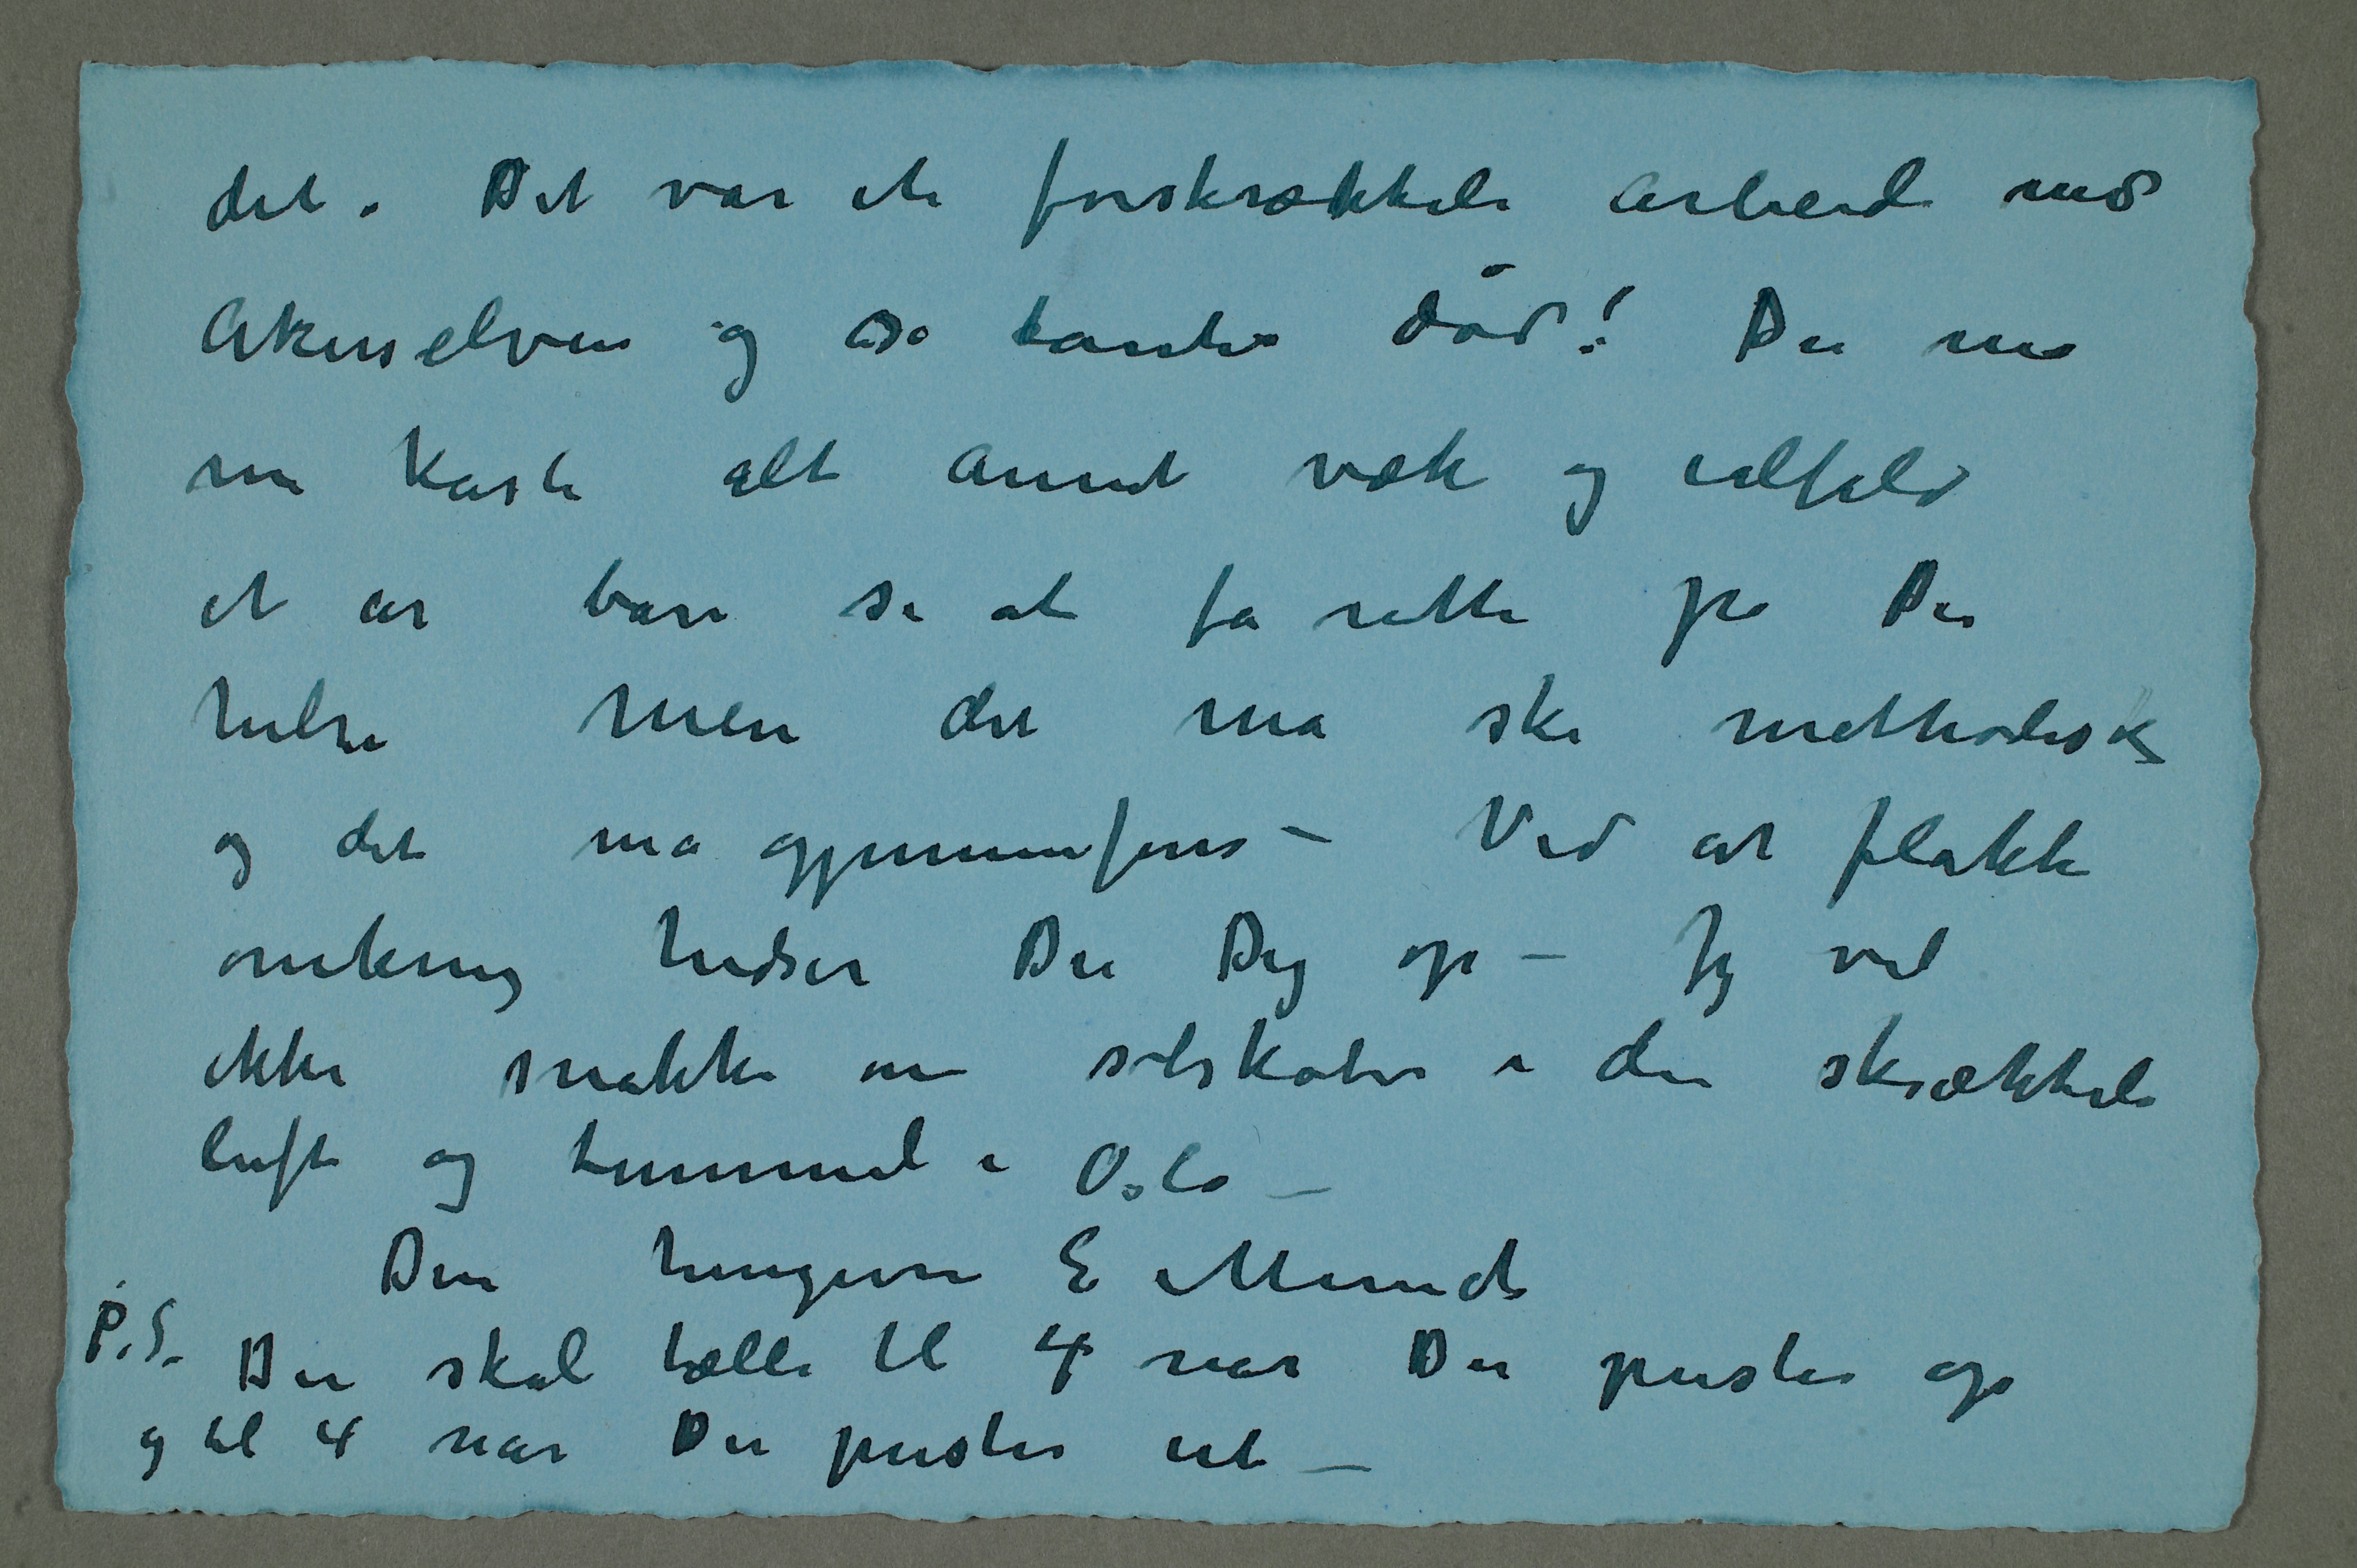 det. Det var et forskrækkeli arbeid med
Akerselven og så tantes död! Du må
nu kaste alt annet væk og ialfald
et år bare se at få rette på Din
helse men det må ske methodisk
og det må gjennemføres – Ved at flakke
omkring hidser Du Dig op – Jeg vil
ikke snakke om selskaber i den skrækkeli
luft og tummel i Oslo –
Din hengivne E Munch
P.S. Du skal tælle til 4 når Du puster op
og til 4 når Du puster ut –